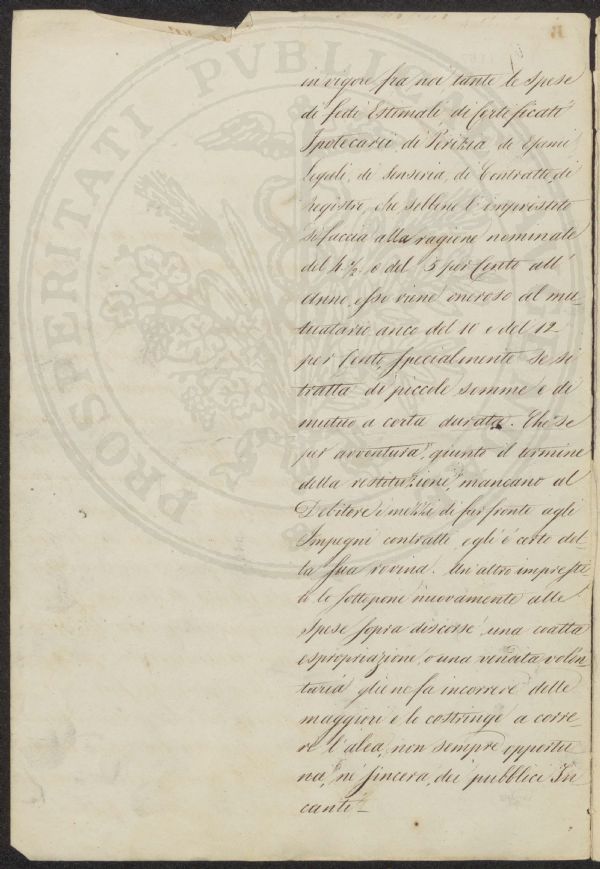 in vigore fra noi tante le spese
di fedi Estimali, di Certificati
Ipotecarii, di Perizia di Esami
legali, di Senseria, di Contratto, di
Registro, che sebbene l'imprestito
si faccia alla ragione nominale
del 4½ o del 5 per Cento all'
anno, esso viene oneroso al mu-
tuatario anco del 10 e del 12
per Cento, specialmente se si
tratta di piccole somme e di
mutuo a corta durata. Che se
per avventura, giunto il termine
della restituzione, mancano al
Debitore i mezzi di far fronte agli
Impegni contratti, egli è certo del-
la sua rovina. Un'altro impresti-
to lo sottopone nuovamente alle
spese sopra discorse, una coatta
espropriazione, o una vendita volon-
taria gliene fa incorrere delle
maggiori e lo costringe a corre-
re l'alea, non sempre opportu-
na, nè sincera, dei pubblici In-
canti -
PROSPERITATI PUBLICAE